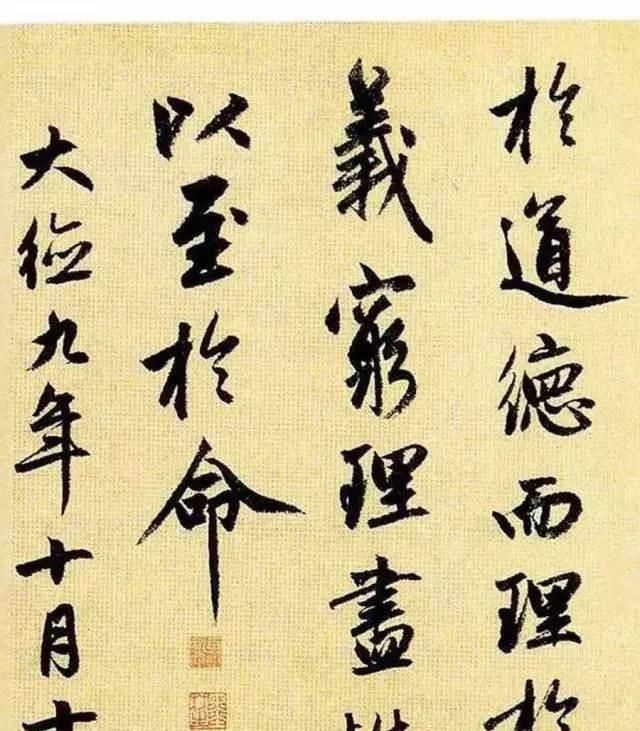 於道德而理於
義窮理盡
以至於命
大德九年十月十